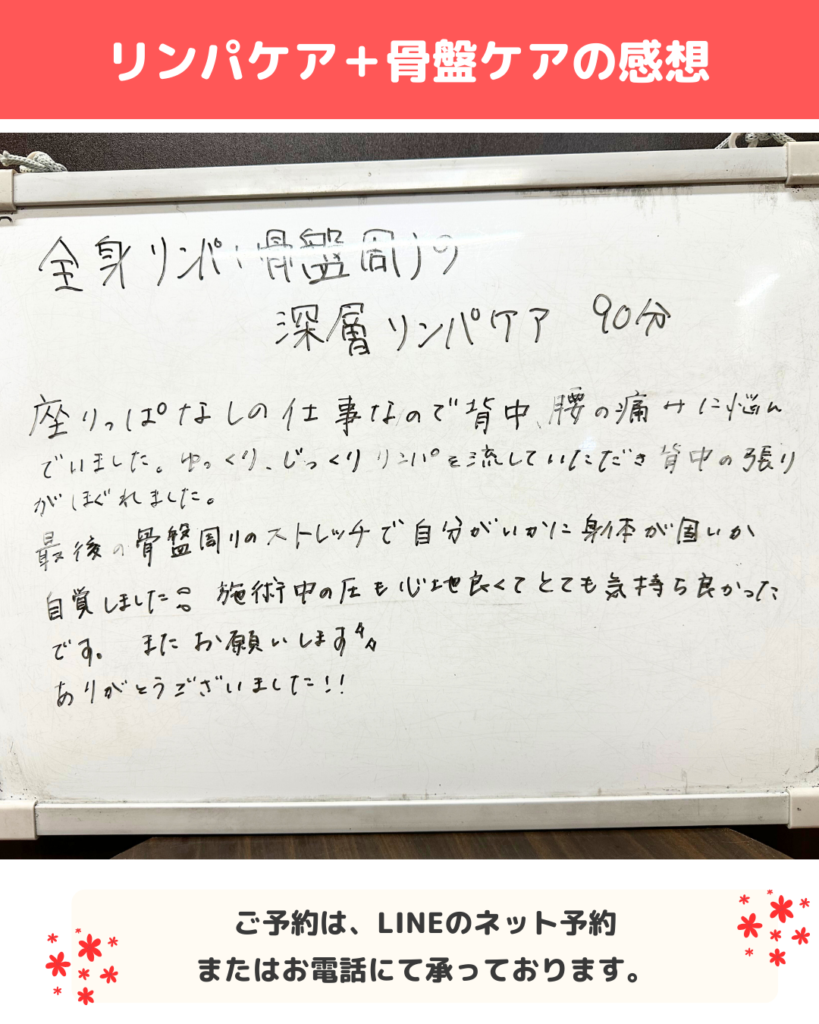 リンパケア＋骨盤ケアの感想
全身リンパ、骨盤周りの
深層リンパケア 90分
座りっぱなしの仕事なので背中、腰の痛みに悩ん
でいました。ゆっくり、じっくりリンパを流していただき背中の張り
がほぐれました。
最後の骨盤周りのストレッチで自分がいかに身体が固いか
自覚しました 施術中の圧も心地良くてとても気持ち良かった
です。またお願いします
ありがとうございました!!
ご予約は、LINEのネット予約
またはお電話にて承っております。